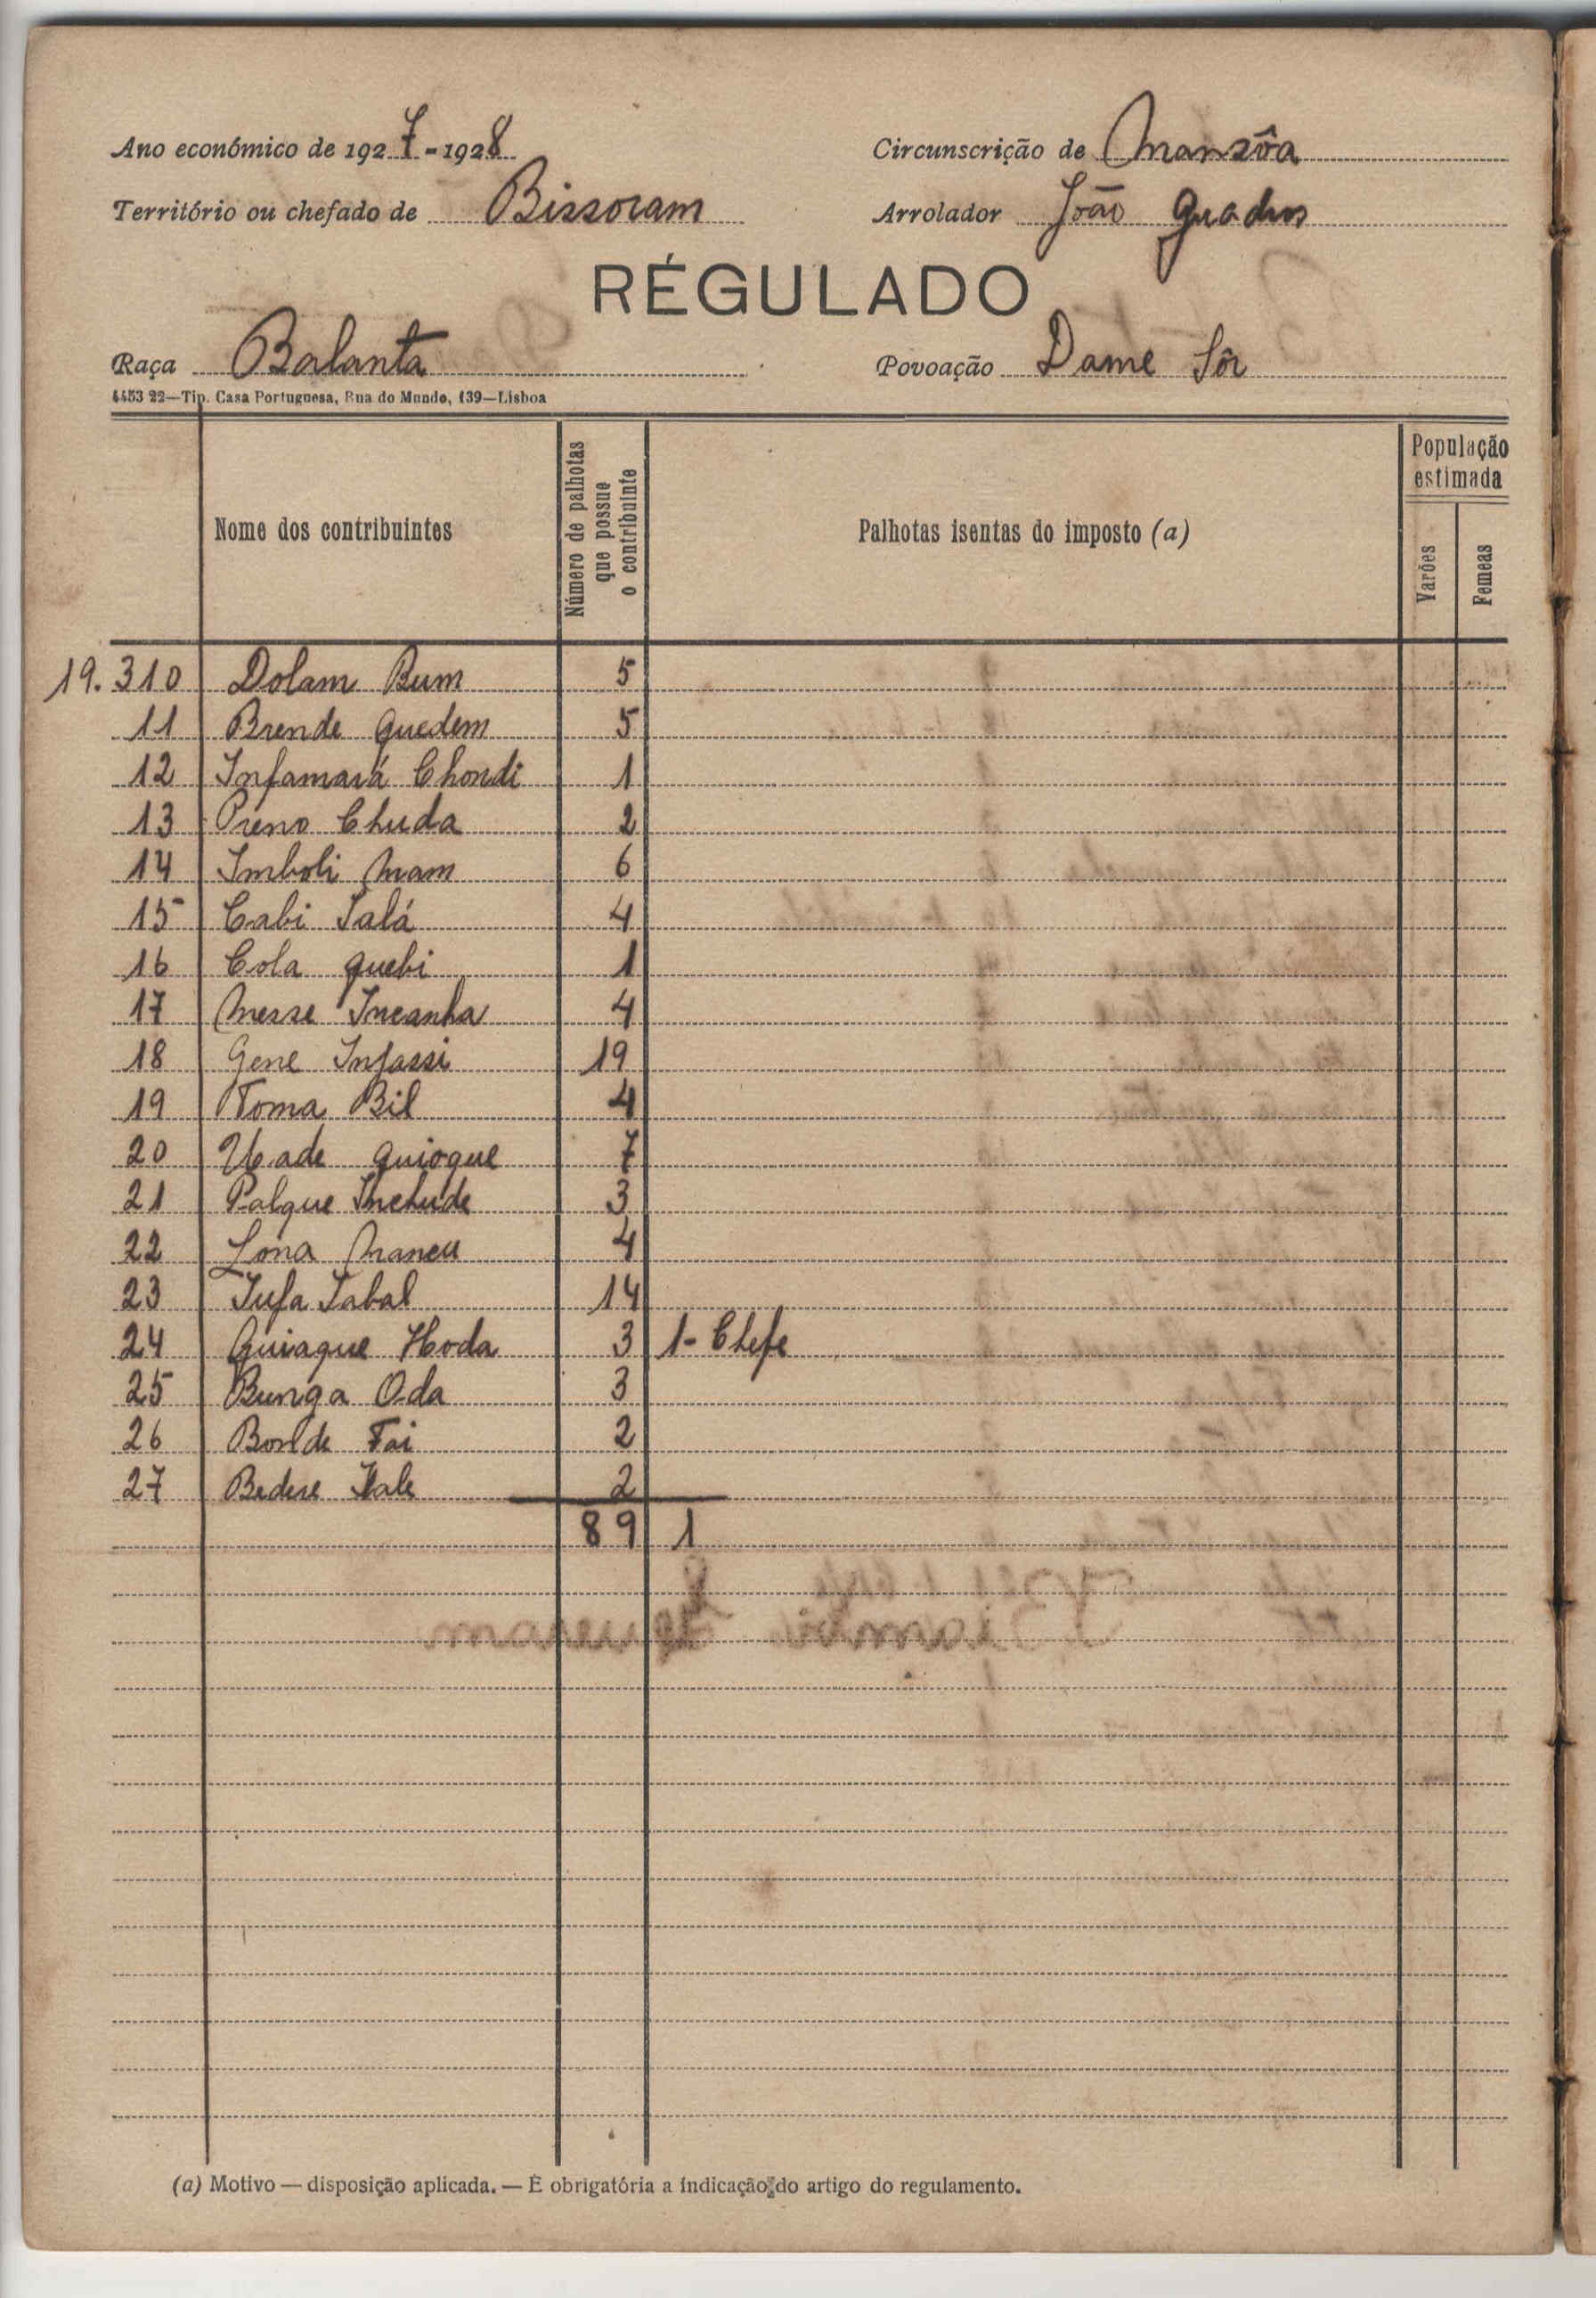 Ano económico de 1927-1928 Circunscrição de Mansôa
Território ou chefado de Bissoram Arrolador João Quadros
RÉGULADO
Raça Balanta Povoação Dame Sôr
4453 22—Tip. Casa Portuguesa, Rua do Mundo, 139—Lisboa
Nome dos contribuintes Número de palhotas que possue o contribuinte Palhotas isentas do imposto (a) População estimada Varões Femeas
19.310 Dolam Bum 5
11 Brende Quedem 5
12 Infamará Chondi 1
13 Preno Chuda 2
14 Imboli Mam 6
15 Cabi Salá 4
16 Cola Quebi 1
17 Messe Incanha 4
18 Gene Infassi 19
19 Toma Bil 4
20 Uade Quioque 7
21 Palque Inchude 3
22 Lona Mancu 4
23 Sufa Sabal 14
24 Quiaque Hoda 3 1- Chefe
25 Bunga Oda 3
26 Bonde Fai 2
27 Bedese 2
89 1
(a) Motivo — disposição aplicada. — É obrigatória a indicação do artigo do regulamento.